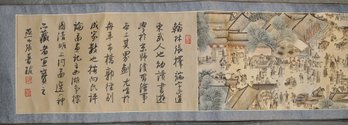 翰林張擇端字正道
東武人也幼讀書遊
學於京師後習繪事
本工其界劃尤嗜於
舟車市橋郭徑別
成家數也按向氏評
論圖畫記云西湖爭標
圖清明上河圖選入神
品藏者宜寶之
燕山張著跋